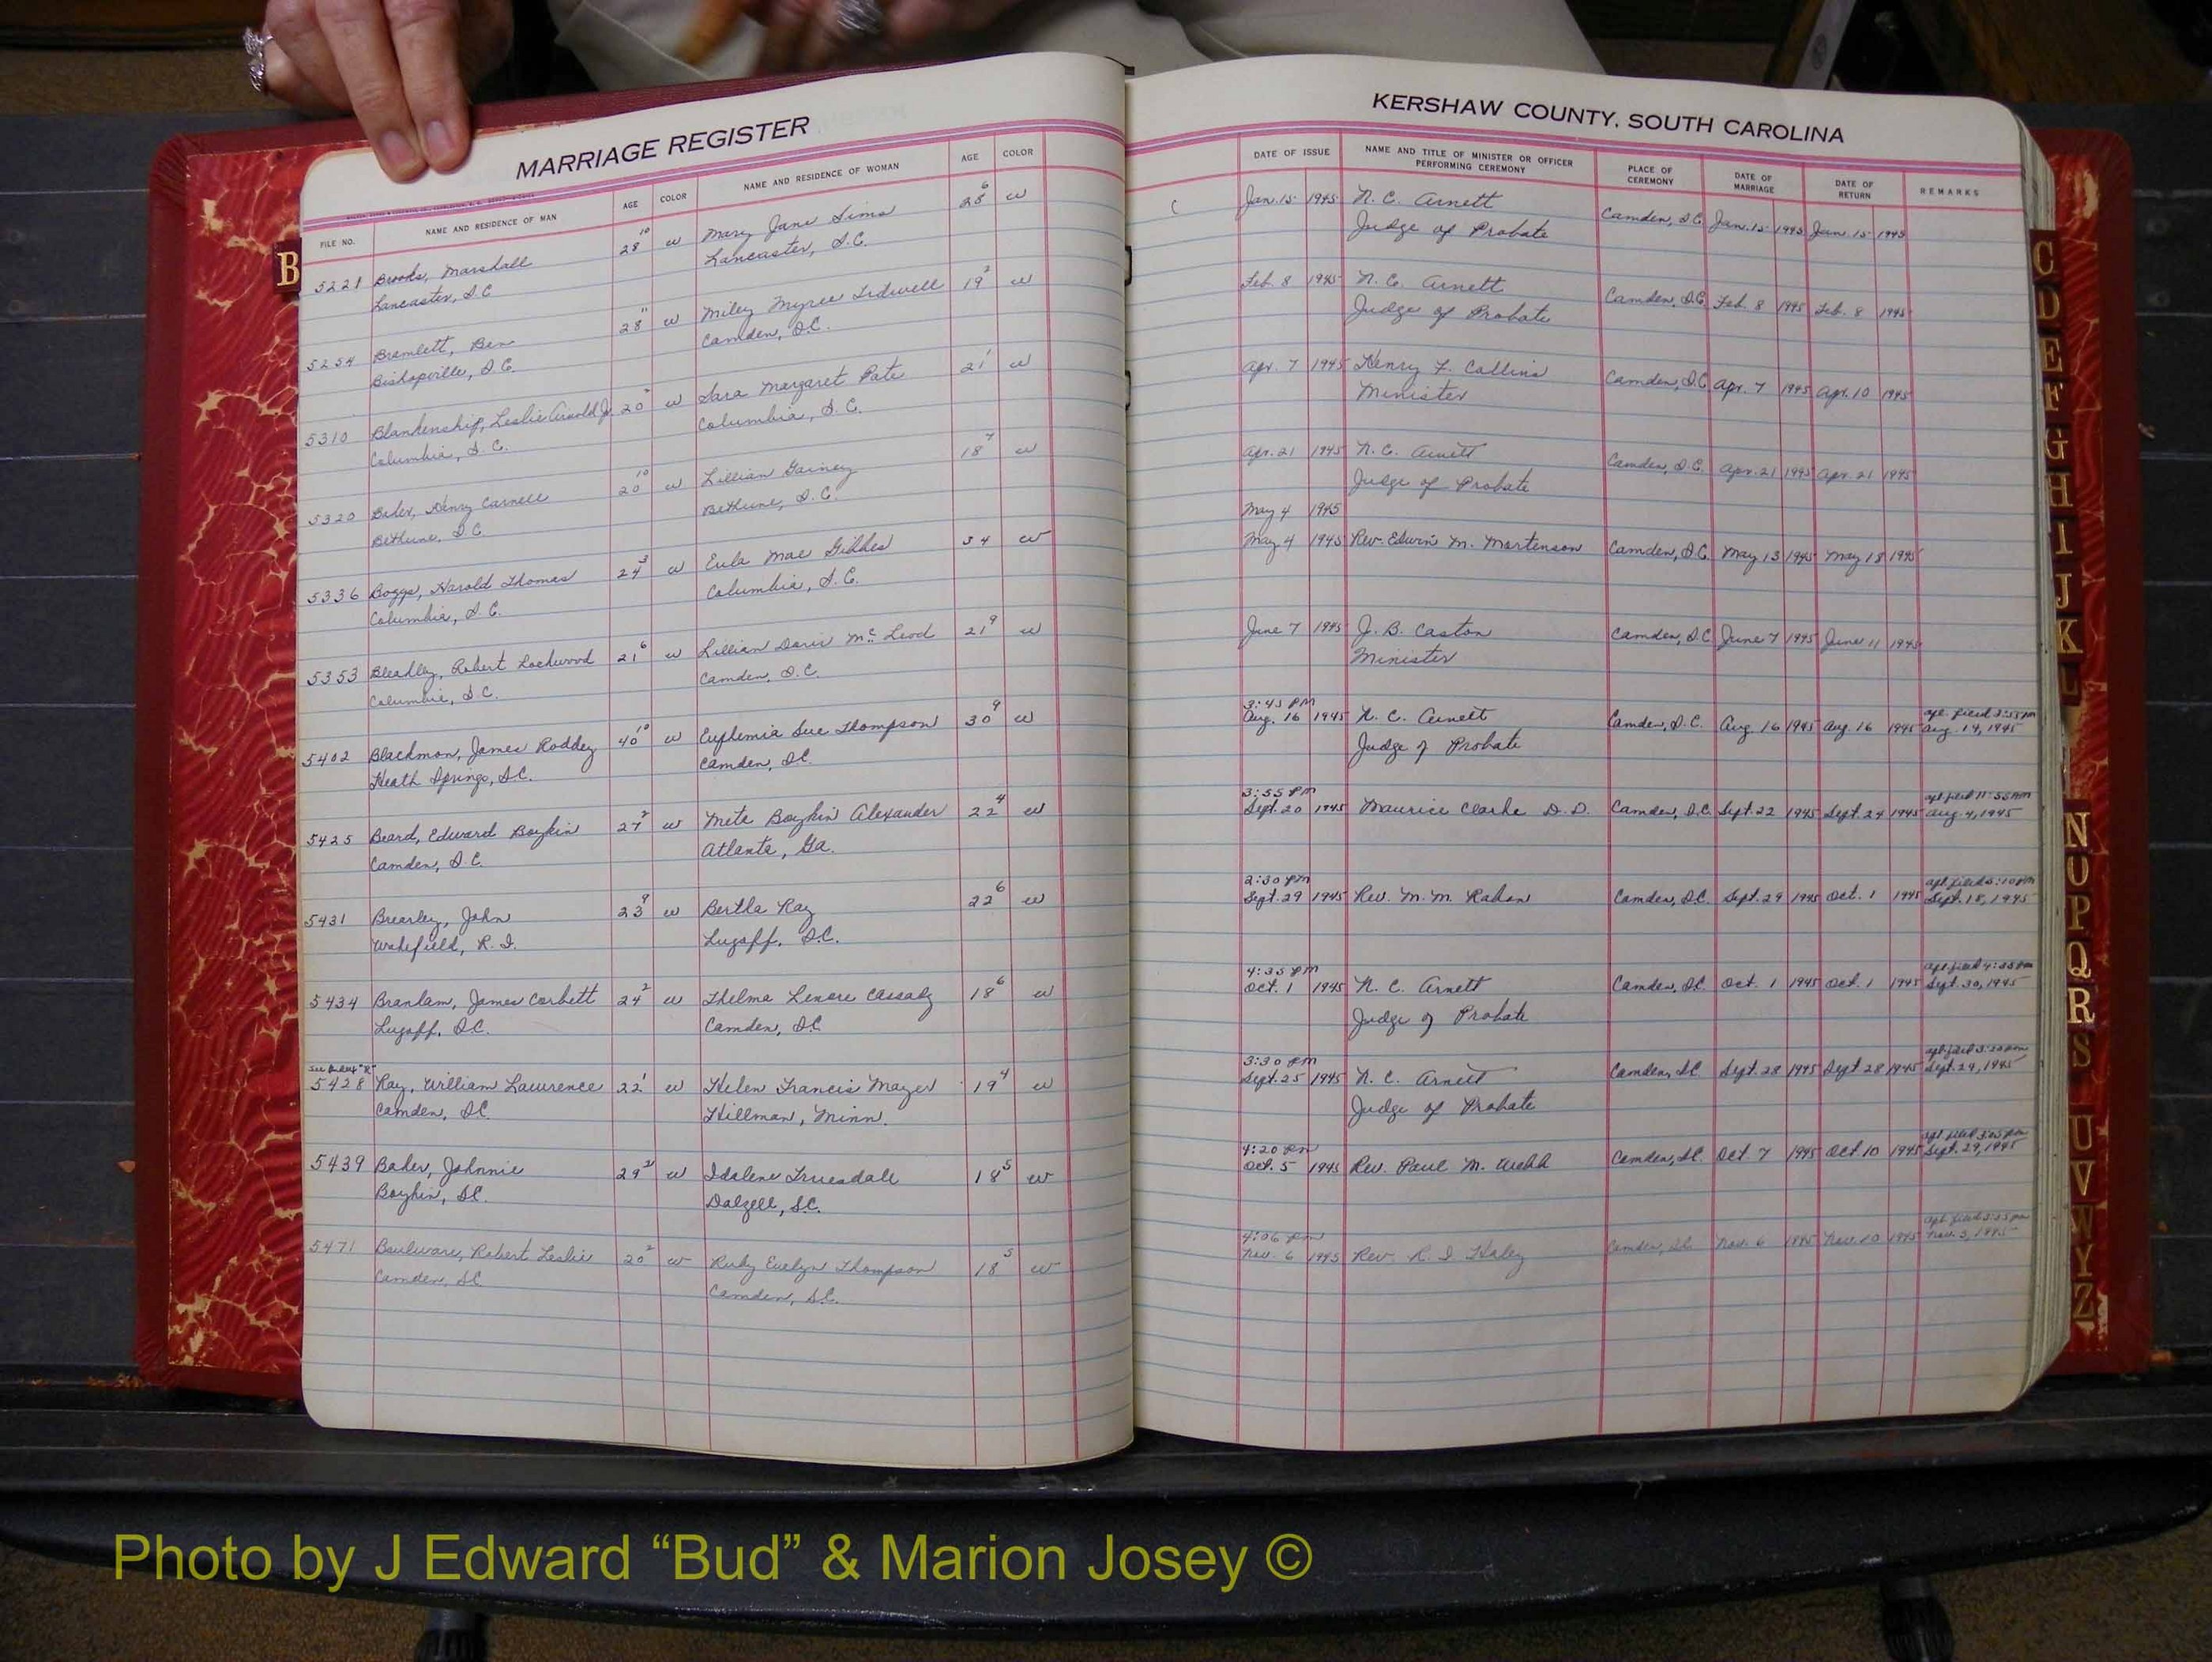 MARRIAGE REGISTER
FILE NO. NAME AND RESIDENCE OF MAN AGE COLOR NAME AND RESIDENCE OF WOMAN AGE COLOR
B
5221 Brooks, Marshall 28 10 w Mary Jane Sims 25 6 w
Lancaster, S.C. Lancaster, S.C.
5254 Bramlett, Ben 28 11 w Miley Myree Tidwell 19 2 w
Bishopville, S.C. Camden, S.C.
5310 Blankenship, Leslie Arnold Jr. 20 w Sara Margaret Pate 21 1 w
Columbia, S.C. Columbia, S.C.
5320 Henry Carnell 20 10 w Lillian Gainey 18 7 w
Bethune, S.C. Bethune, S.C.
5336 Boggs, Harold Thomas 24 3 w Eula Mae Gibbes 34 w
Columbia, S.C. Columbia, S.C.
5353 Bleakley, Robert Lockwood 21 6 w Lillian Doris McLeod 21 9 w
Columbia, S.C. Camden, S.C.
5402 Blackmon, James Roddey 40 10 w Euphemia Sue Thompson 30 9 w
Heath Springs, S.C. Camden, S.C.
5425 Beard, Edward Boykin 27 2 w Meta Boykin Alexander 22 4 w
Camden, S.C. Atlanta, Ga.
5431 Brearley, John 23 9 w Bertha Ray 22 6 w
Wakefield, R.I. Lugoff, S.C.
5434 Branham, James Corbett 24 2 w Thelma Lenore Cassady 18 6 w
Lugoff, S.C. Camden, S.C.
5428 Ray, William Lawrence 22 1 w Helen Francis Mayer 19 4 w
Camden, S.C. Hillman, Minn.
5439 Baker, Johnnie 29 w Idalene Truesdale 18 5 w
Boykin, S.C. Dalzell, S.C.
5471 Boulware, Robert Leslie 20 2 w Ruby Evelyn Thompson 18 5 w
Camden, S.C. Camden, S.C.
KERSHAW COUNTY, SOUTH CAROLINA
DATE OF ISSUE NAME AND TITLE OF MINISTER OR OFFICER PERFORMING CEREMONY PLACE OF CEREMONY DATE OF MARRIAGE DATE OF RETURN REMARKS
Jan. 15 1945 N. C. Arnett Camden, S.C. Jan. 15 1945 Jan. 15 1945
Judge of Probate
Feb. 8 1945 N. C. Arnett Camden, S.C. Feb. 8 1945 Feb. 8 1945
Judge of Probate
Apr. 7 1945 Henry F. Collins Camden, S.C. Apr. 7 1945 Apr. 10 1945
Minister
Apr. 21 1945 N. C. Arnett Camden, S.C. Apr. 21 1945 Apr. 21 1945
Judge of Probate
May 4 1945
May 4 1945 Rev. Edwin M. Mortenson Camden, S.C. May 13 1945 May 18 1945
June 7 1945 J. B. Caston Camden, S.C. June 7 1945 June 11 1945
Minister
3:45 PM
Aug. 16 1945 N. C. Arnett Camden, S.C. Aug. 16 1945 Aug. 16 1945 apl. filed Aug. 14, 1945
Judge of Probate
3:55 PM
Sept. 20 1945 Maurice Clarke D.D. Camden, S.C. Sept. 22 1945 Sept. 24 1945 apl. filed Aug. 4, 1945
2:30 PM
Sept. 29 1945 Rev. M. M. Camden, S.C. Sept. 29 1945 Oct. 1 1945 apl. filed Sept. 18, 1945
4:35 PM
Oct. 1 1945 N. C. Arnett Camden, S.C. Oct. 1 1945 Oct. 1 1945 apl. filed Sept. 30, 1945
Judge of Probate
3:30 PM
Sept. 25 1945 N. C. Arnett Camden, S.C. Sept. 28 1945 Sept 28 1945 apl. filed Sept. 24, 1945
Judge of Probate
4:20 PM
Oct. 5 1945 Rev. Paul M. Webb Camden, S.C. Oct 7 1945 Oct. 10 1945 apl. filed Sept. 29, 1945
4:06 pm
Nov. 6 1945 Rev. R. I. Haley Camden, S.C. Nov. 6 1945 Nov. 20 1945 apl. filed Nov. 3, 1945
C
D
E
F
G
H
I
J
K
L
N
O
P
Q
R
S
U
V
W
Y
Z
Photo by J Edward “Bud” & Marion Josey ©